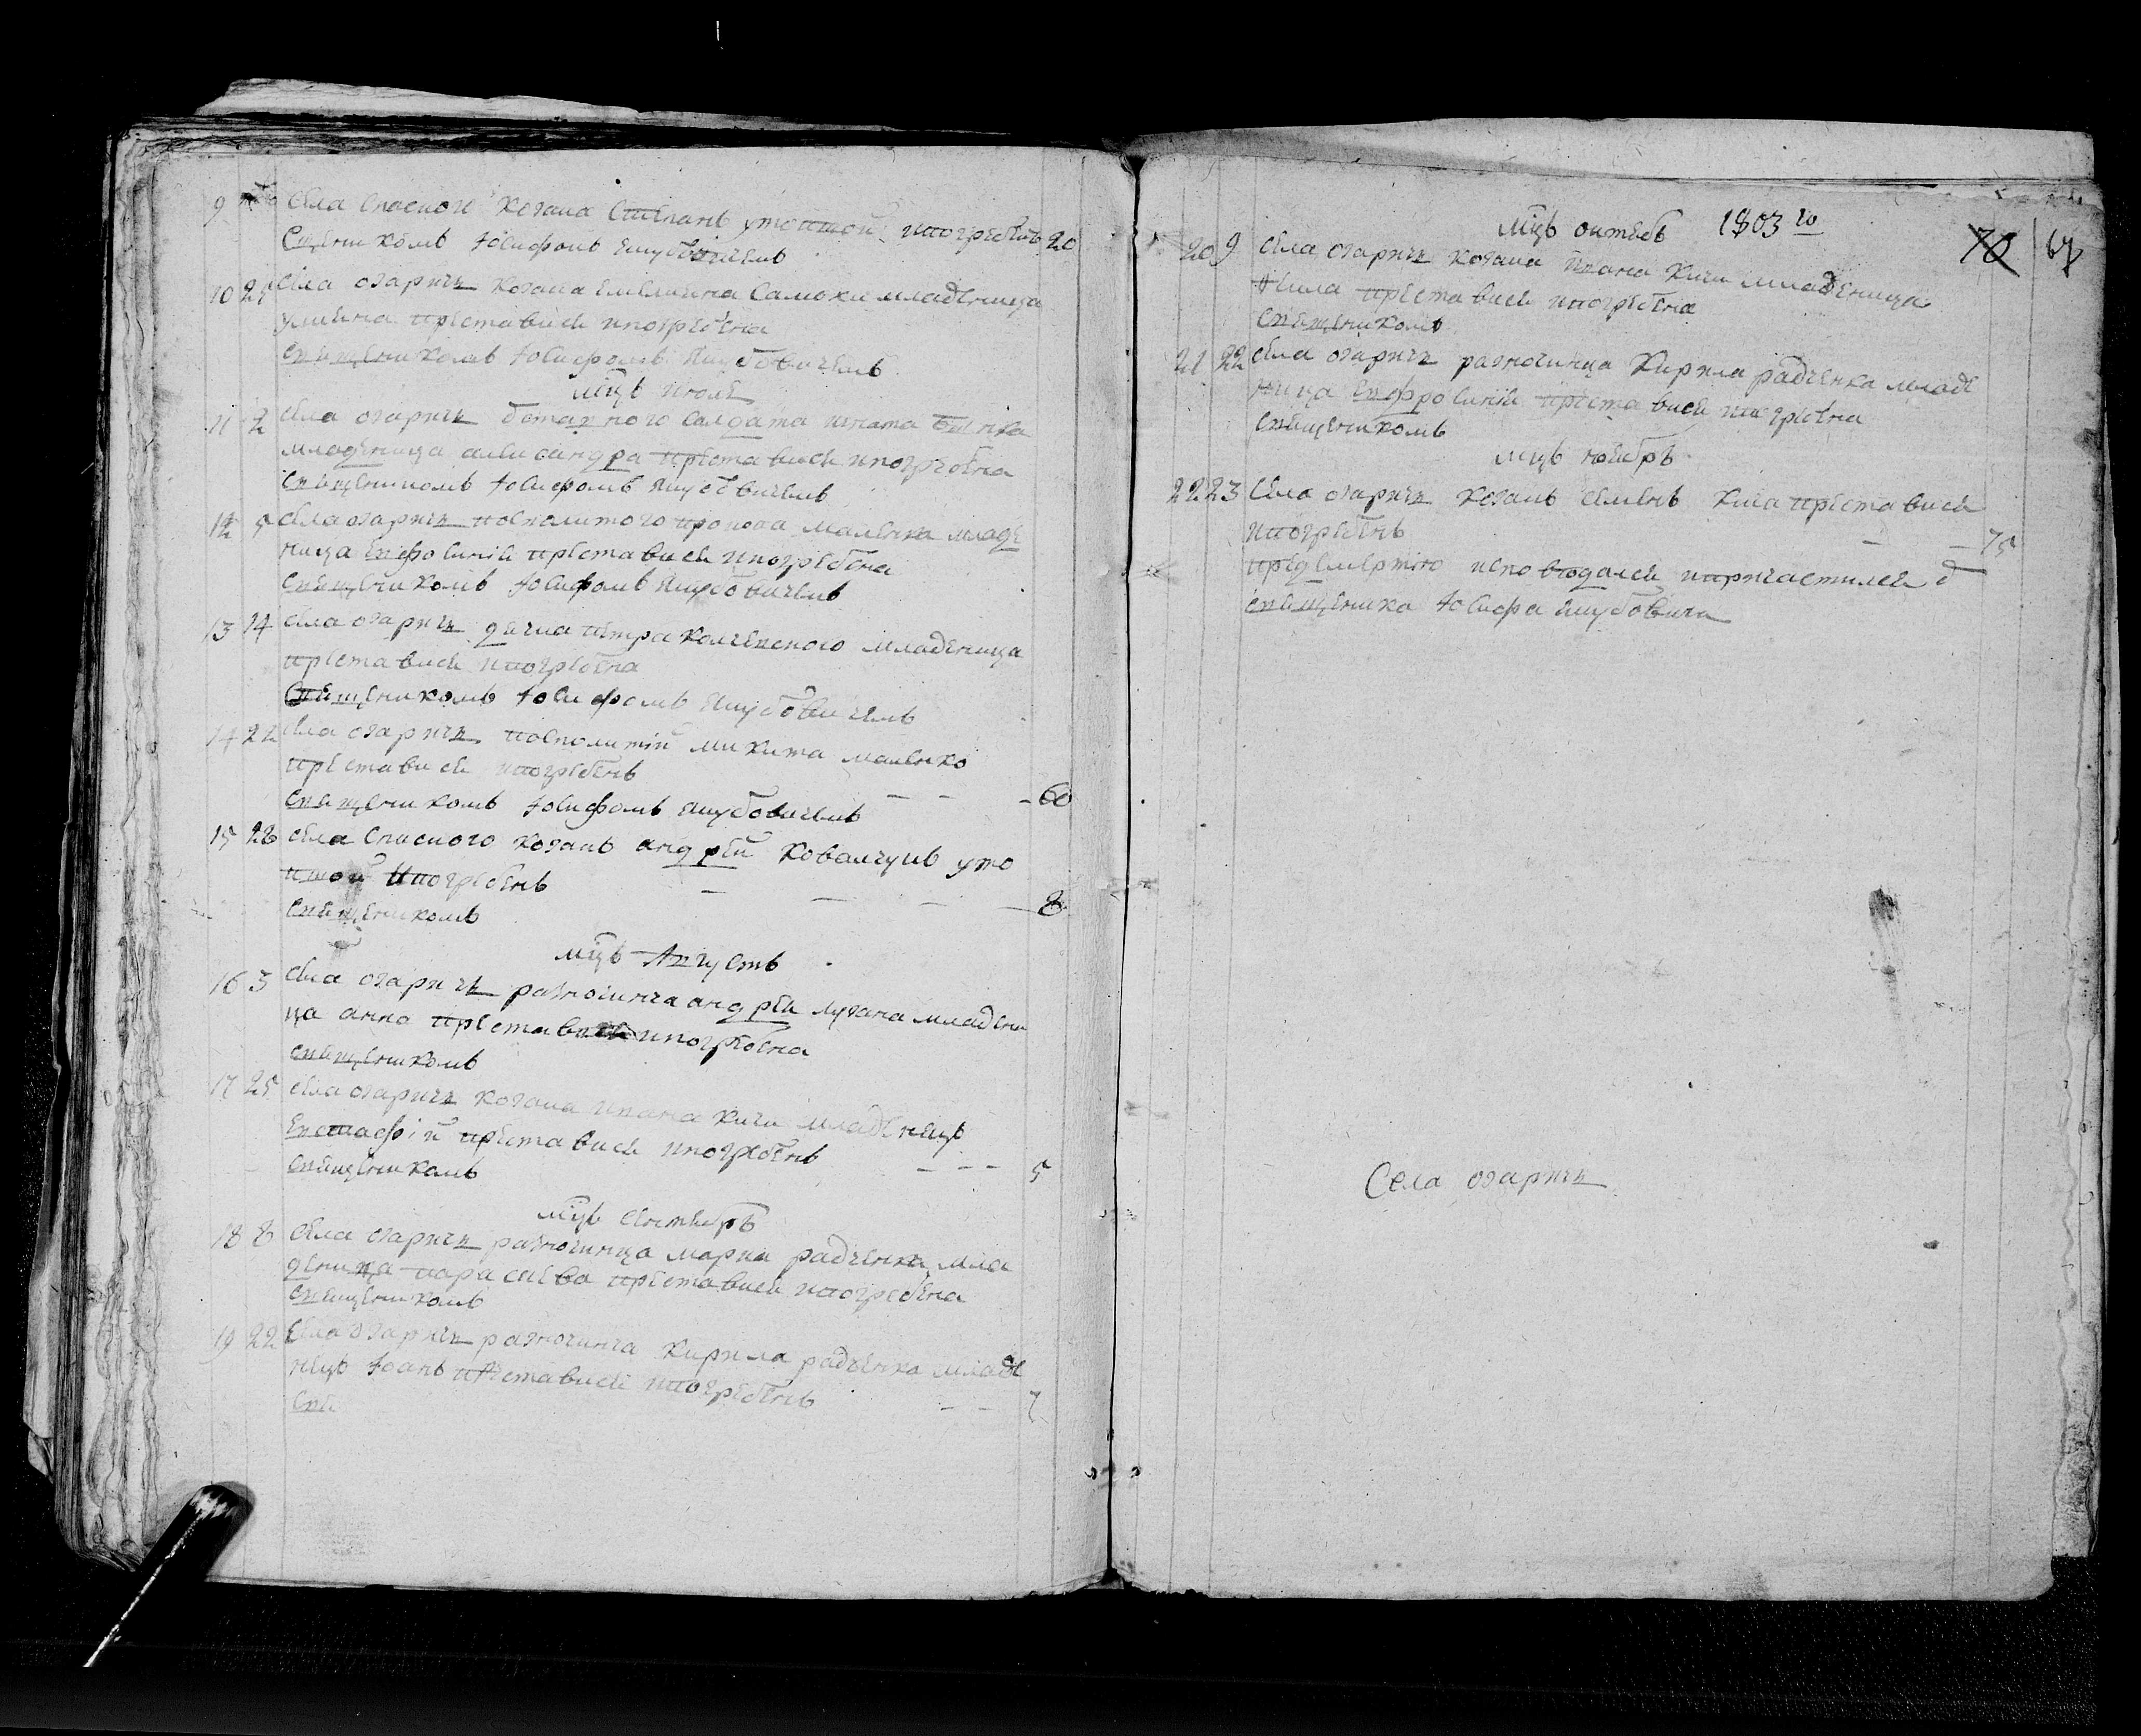 9 села спаского козака Степанъ утопшой ипогребенъ 20
Сщеникомъ Іосифомъ Якубовичемъ
10 21 села озаричъ козака емелияна Самохи младеница
улияна преставися ипогребена
священикомъ Іосифомъ Якубовичемъ
мцъ июль
11 2 села озаричъ отставного салдата игната
младеница алисандра преставися ипогребена
священикомъ Іосифомъ Якубовичемъ
12 5 села озаричъ посполитого прокопа маленка младе
ница Евфросиния преставися ипогребена
священикомъ Іосифомъ Якубовичемъ
13 14 села озаричъ дячка петра колчевского младеница
преставися ипогребена
Священикомъ Іосифомъ Якубовичемъ
14 22 села озаричъ посполитий микита маленко
преставися ипогребенъ
священикомъ Іосифомъ Якубовичемъ – – – 60
15 28 села Спаского козакъ андрей Ковалчукъ уто
пшой Ипогребенъ – – – – 8
священикомъ
мцъ Августъ
16 3 села озаричъ разночинца андрея лузана младени
ца анна преставися ипогребена
священикомъ
17 25 села озаричъ козака ивана Кичи младенецъ
Евстафій преставися ипогребенъ
священикомъ – – – 5
мцъ сентябръ
18 8 села озаричъ разночинца марка радченка мла
деница параскева преставися ипогребена
священикомъ
19 22 села озаричъ разночинца кирила радченка младе
нецъ Іоанъ преставися ипогребенъ – – 7
свя
мцъ октябъ 1803 го
70 67
20 9 села озаричъ козака ивана Кичи младеница
преставися ипогребена
священикомъ
21 22 села озаричъ разночинца Кирила радченка младе
ница Евфросиния преставися ипогребена
священикомъ
мцъ ноябръ
22 23 села озаричъ козакъ семенъ Кича преставися
ипогребенъ – – 75
предсмертию исповѣдался ипричастился д
священика Іосифа Якубовича
Села озаричъ